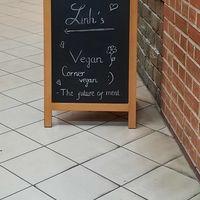 Linh's
Vegan
Corner
vegan :)
- The future of meat